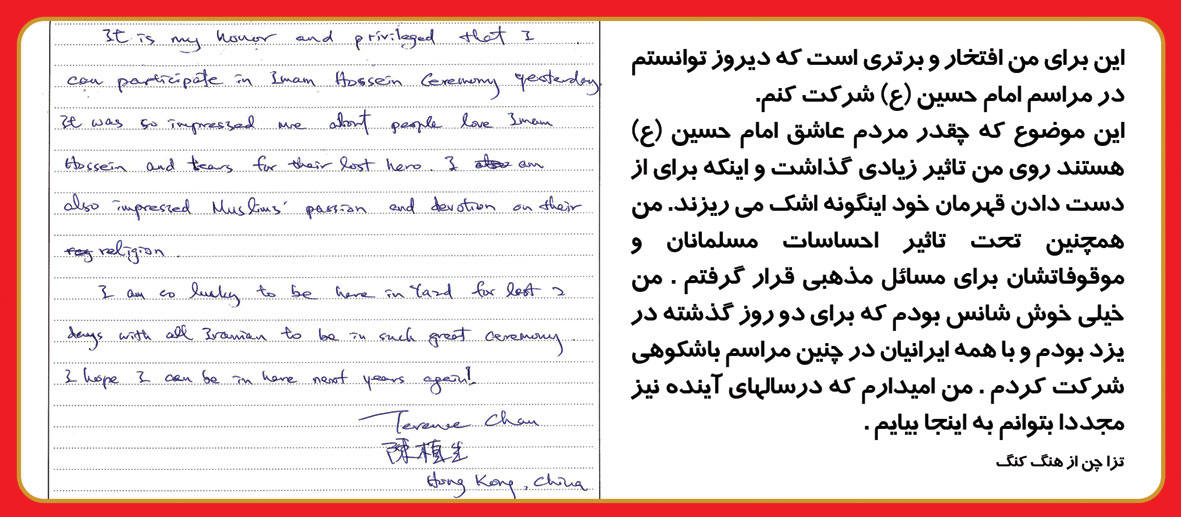 It is my honor and privileged that I
can participate in Imam Hossein Ceremony yesterday.
It was so impressed me about people love Imam
Hossein and tears for their lost hero. I also am
also impressed Muslims' passion and devotion on their
reg religion.
I am so lucky to be here in Yazd for last 2
days with all Iranian to be in such great ceremony.
I hope I can be in here next years again!
Terence Chan
陳植生
Hong Kong, China
این برای من افتخار و برتری است که دیروز توانستم
در مراسم امام حسین (ع) شرکت کنم.
این موضوع که چقدر مردم عاشق امام حسین (ع)
هستند روی من تاثیر زیادی گذاشت و اینکه برای از
دست دادن قهرمان خود اینگونه اشک می ریزند. من
همچنین تحت تاثیر احساسات مسلمانان و
موقوفاتشان برای مسائل مذهبی قرار گرفتم . من
خیلی خوش شانس بودم که برای دو روز گذشته در
یزد بودم و با همه ایرانیان در چنین مراسم باشکوهی
شرکت کردم . من امیدارم که درسالهای آینده نیز
مجددا بتوانم به اینجا بیایم .
تزا چن از هنگ کنگ